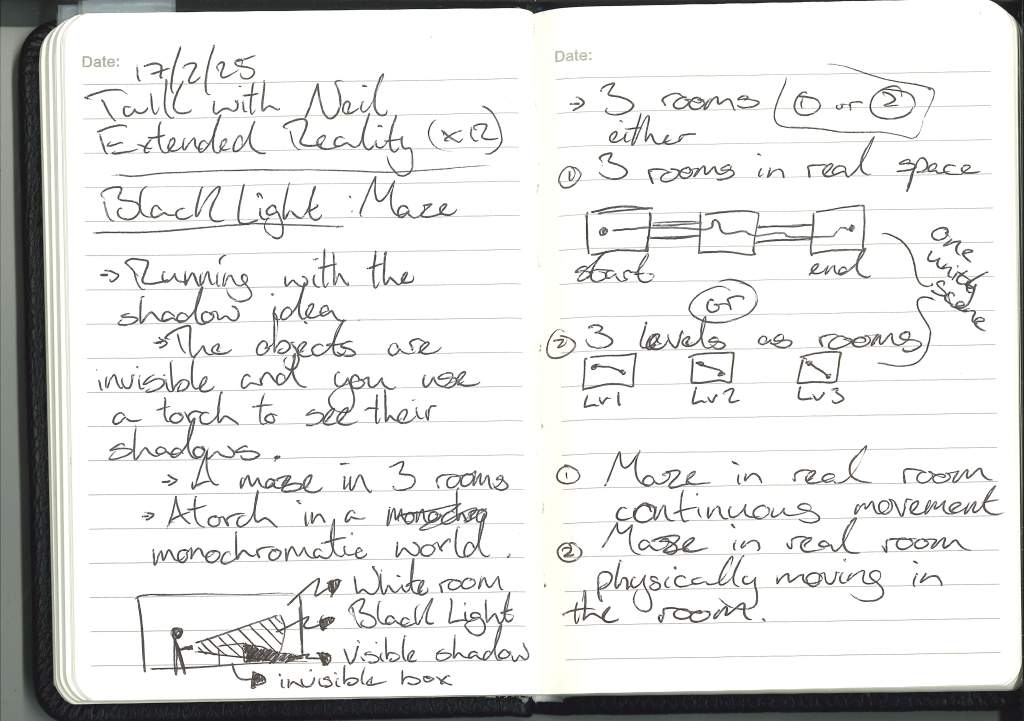 Date: 17/2/25
Talk with Neil
Extended Reality (XR)
Black Light : Maze
→ Running with the
shadow idea
→ The objects are
invisible and you use
a torch to see their
shadows.
→ A maze in 3 rooms
→ A torch in a monochro
monochromatic world.
White room
Black Light
visible shadow
invisible box
Date:
→ 3 rooms (① or ②)
either
① 3 rooms in real space
start
end
one
unity
scene
or
② 3 levels as rooms
Lv1 Lv2 Lv3
① Maze in real room
continuous movement
② Maze in real room
physically moving in
the room.